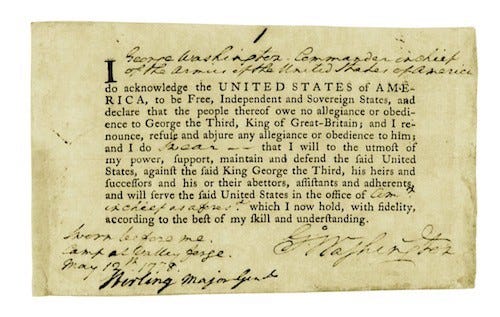 I George Washington, Commander in chief
of the Armies of the United States of America
do acknowledge the UNITED STATES of AME-
RICA, to be Free, Independent and Sovereign States, and
declare that the people thereof owe no allegiance or obedi-
ence to George the Third, King of Great-Britain; and I re-
nounce, refuſe and abjure any allegiance or obedience to him;
and I do swear — that I will to the utmoſt of
my power, ſupport, maintain and defend the ſaid United
States, againſt the ſaid King George the Third, his heirs and
ſucceſſors and his or their abettors, aſſiſtants and adherents,
and will ſerve the ſaid United States in the office of Com
in chief as which I now hold, with fidelity,
according to the beſt of my ſkill and underſtanding.
Go Washington
Sworn before me.
Camp at Valley forge.
May 12th 1778.
Stirling Major Genl